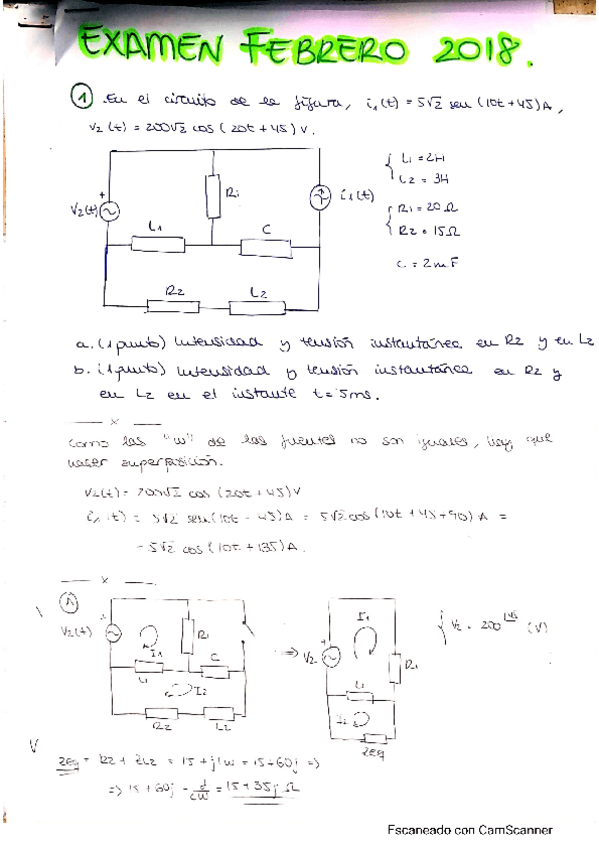 EXAMEN FEBRERO 2018.
① En el circuito de la figura, i₁(t) = 5√2 sen (10t+45) A,
v₂(t) = 200√2 cos (20t + 45) V.
L₁ = 2H
L₂ = 3H
R₁ = 20 Ω
R₂ = 15 Ω
C = 2mF
V₂(t)
+
R₁
i₁(t)
L₁
C
R₂
L₂
a. (1 punto) Intensidad y tensión instantánea en R₂ y en L₂
b. (1 punto) Intensidad y tensión instantánea en R₂ y
en L₂ en el instante t = 5ms.
x
Como las "w" de las fuentes no son iguales, hay que
hacer superposición.
V₂(t) = 200√2 cos (20t + 45) V
i₁(t) = 5√2 sen(10t - 45) A = 5√2 cos (10t + 45 + 90) A =
= 5√2 cos (10t + 135) A.
x
Ⓐ
V₂(t)
+
I₁
R₁
L₁
C
I₂
R₂
L₂
=>
V₂
+
I₁
R₁
L₁
I₂
Zeq
V₂ = 200 (V)
V
Zeq = R₂ + ZL₂ = 15 + jLw = 15 + 60j =>
=> 15 + 60j - = 15 + 35j Ω
Escaneado con CamScanner